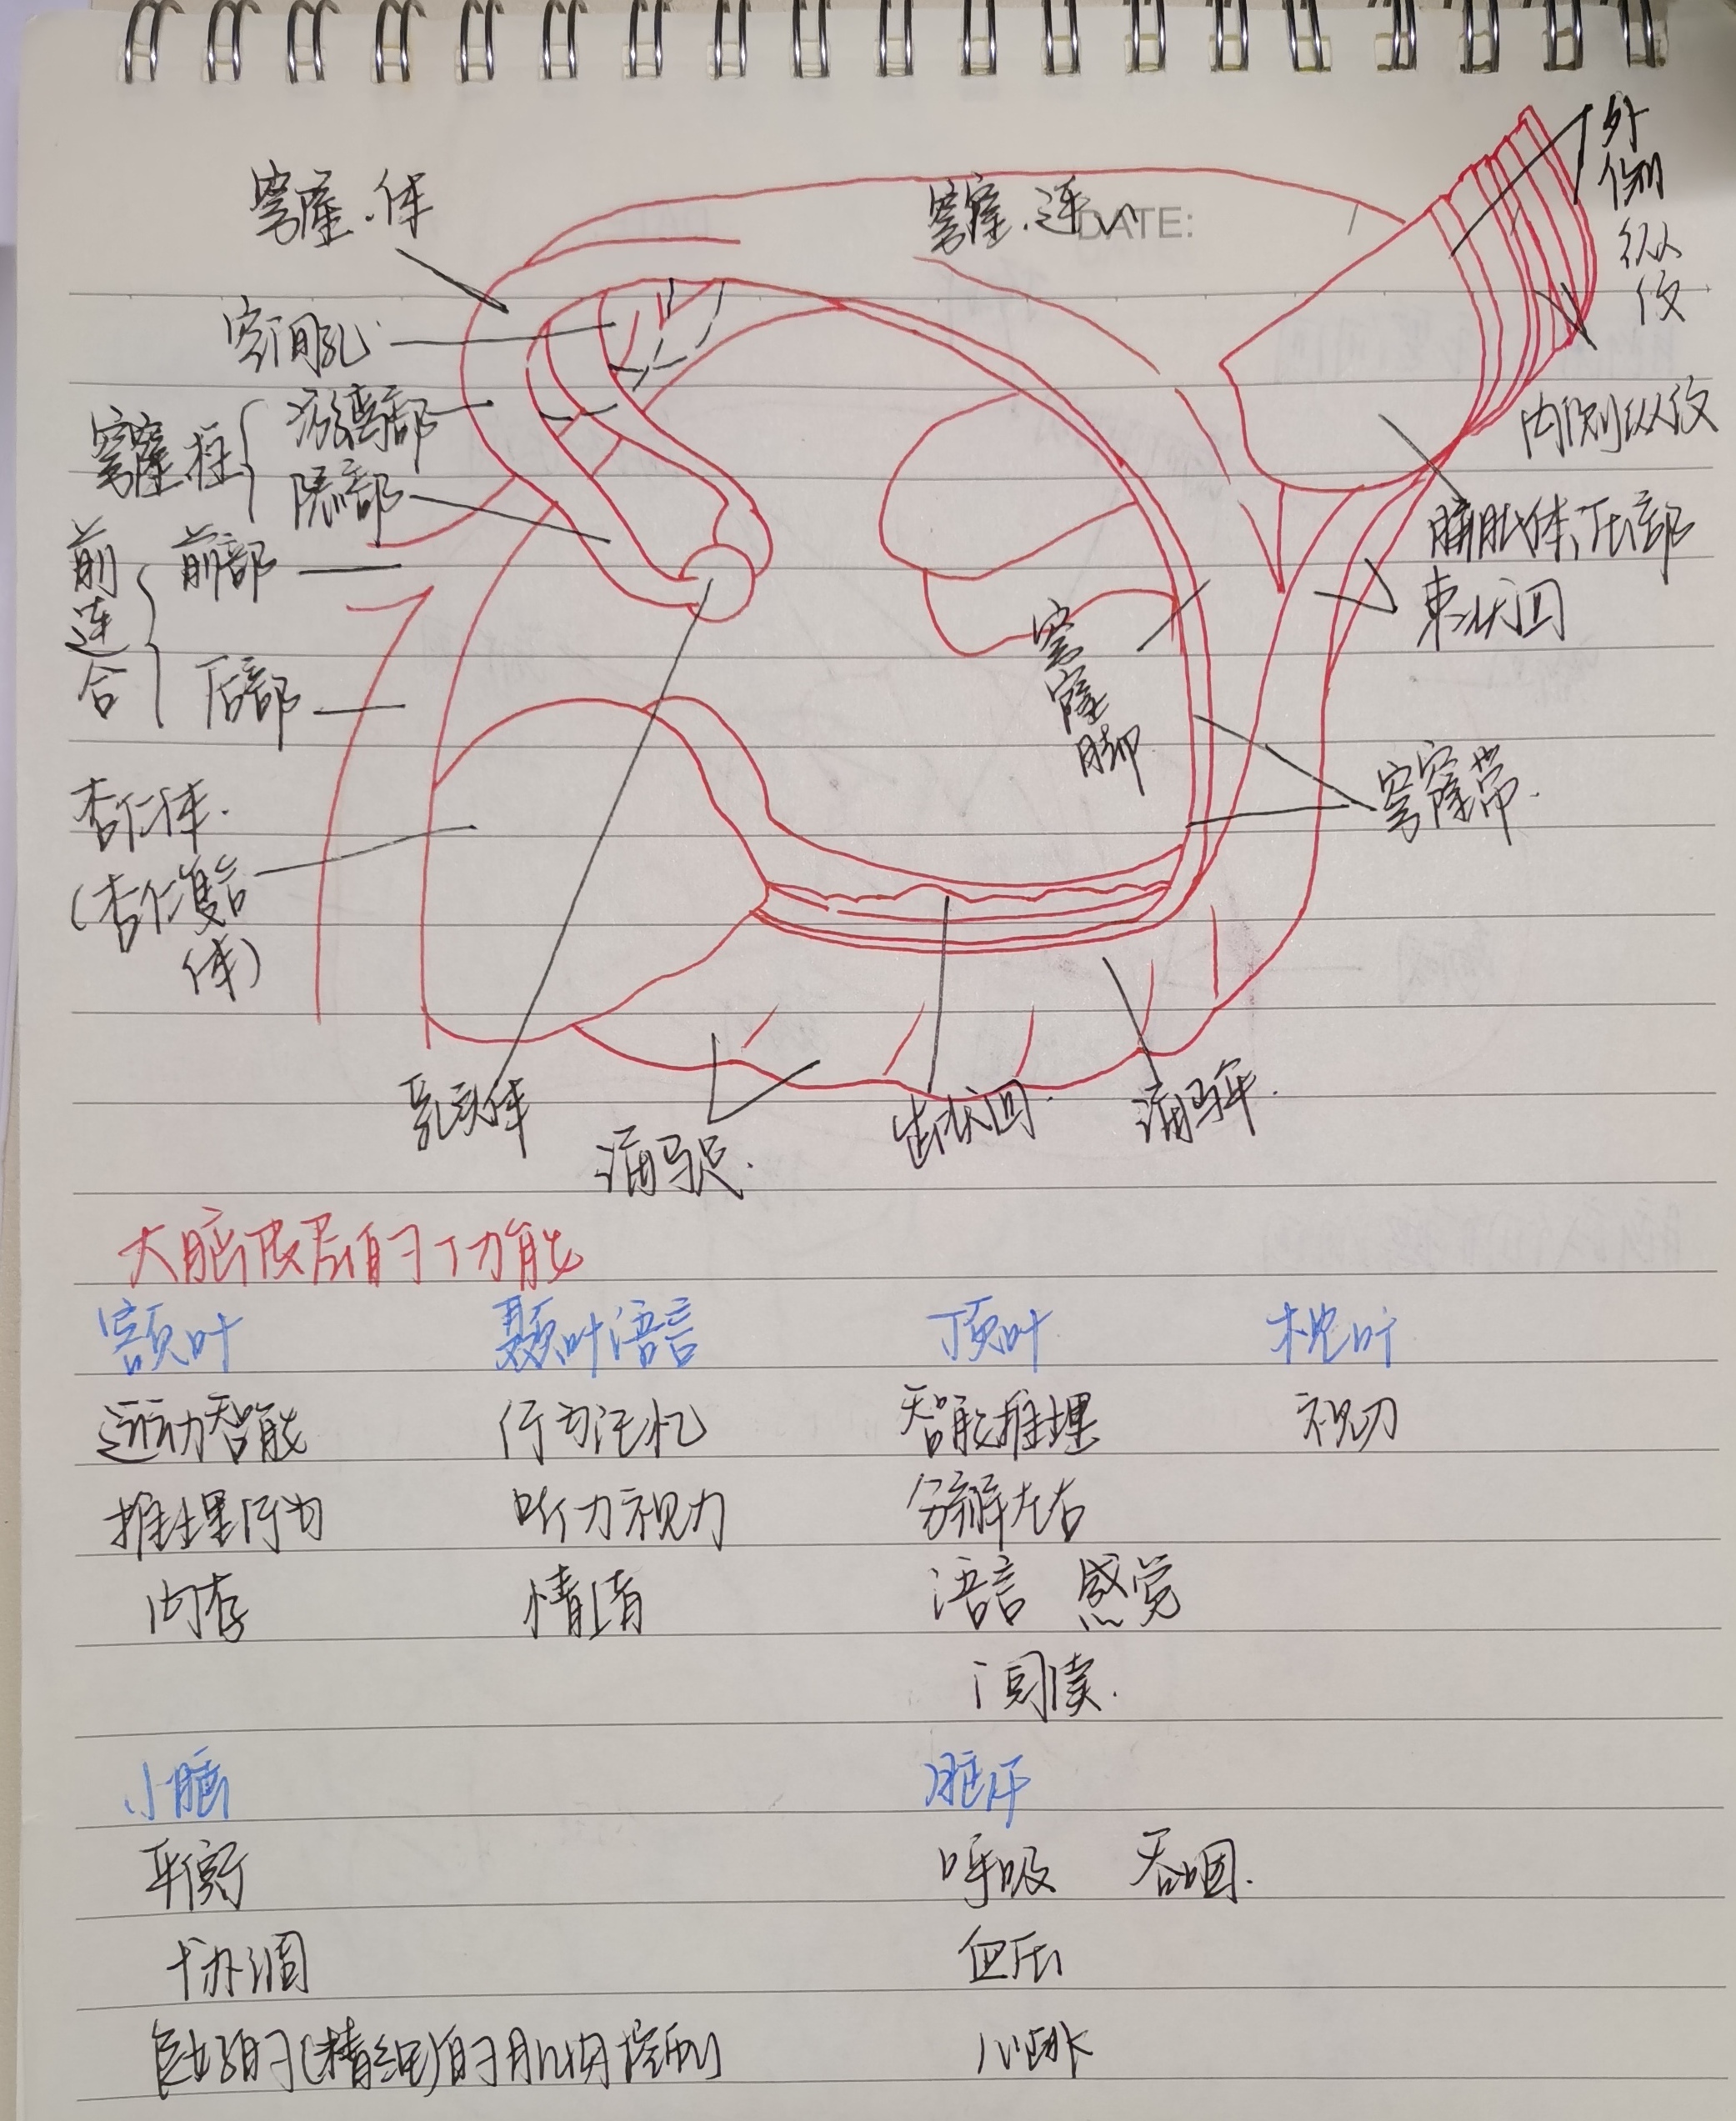 穹窿·体
穹窿·连
DATE:
外侧纵纹
室间孔
内侧纵纹
穹窿柱
游离部
隐部
胼胝体,压部
束状回
前连合
前部
后部
穹窿脚
穹窿带.
杏仁体.
(杏仁复合体)
乳头体
海马足.
齿状回.
海马伞.
大脑皮层的功能
额叶 颞叶语言 顶叶 枕叶
运动智能 行为记忆 智能推理 视力
推理行为 听力视力 分辨左右
内存 情绪 语言 感觉
阅读.
小脑 脑干
平衡 呼吸 吞咽.
协调 血压
良好的(精细)的肌肉控制 心跳